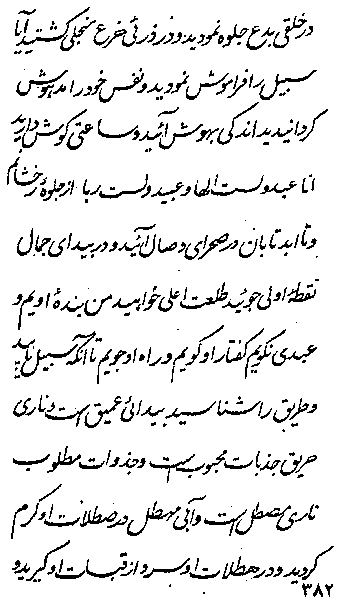 در خلقی بدع جلوه نمودید و در ذرئی خرع منجلی گشتید آیا
سبیل را فراموش نمودید و نفس خود را مدهوش
گردانیدید اندکی بهوش آئید و ساعتی گوش دارید
انا عبد و لست الها و عبید و لست ربا از جلوهٔ رخشانم
و تا ابد تابان در صحرای وصال آئید و در بیدای جمال
نقطهٔ اولی جوئید طلعت اعلی خواهید من بندهٔ اویم و
عبدی نگویم گفتار او گویم و راه او جویم تا آنکه سبیل یابید
و طریق را شناسید بیدائی عمیق است و ناری
حریق جذبات محبوب است و جذوات مطلوب
ناری مصطل است و آبی مهطل در صطلات او گرم
گردید و در هطلات او سرد و از قبسات او گیرید و
۳۸۲